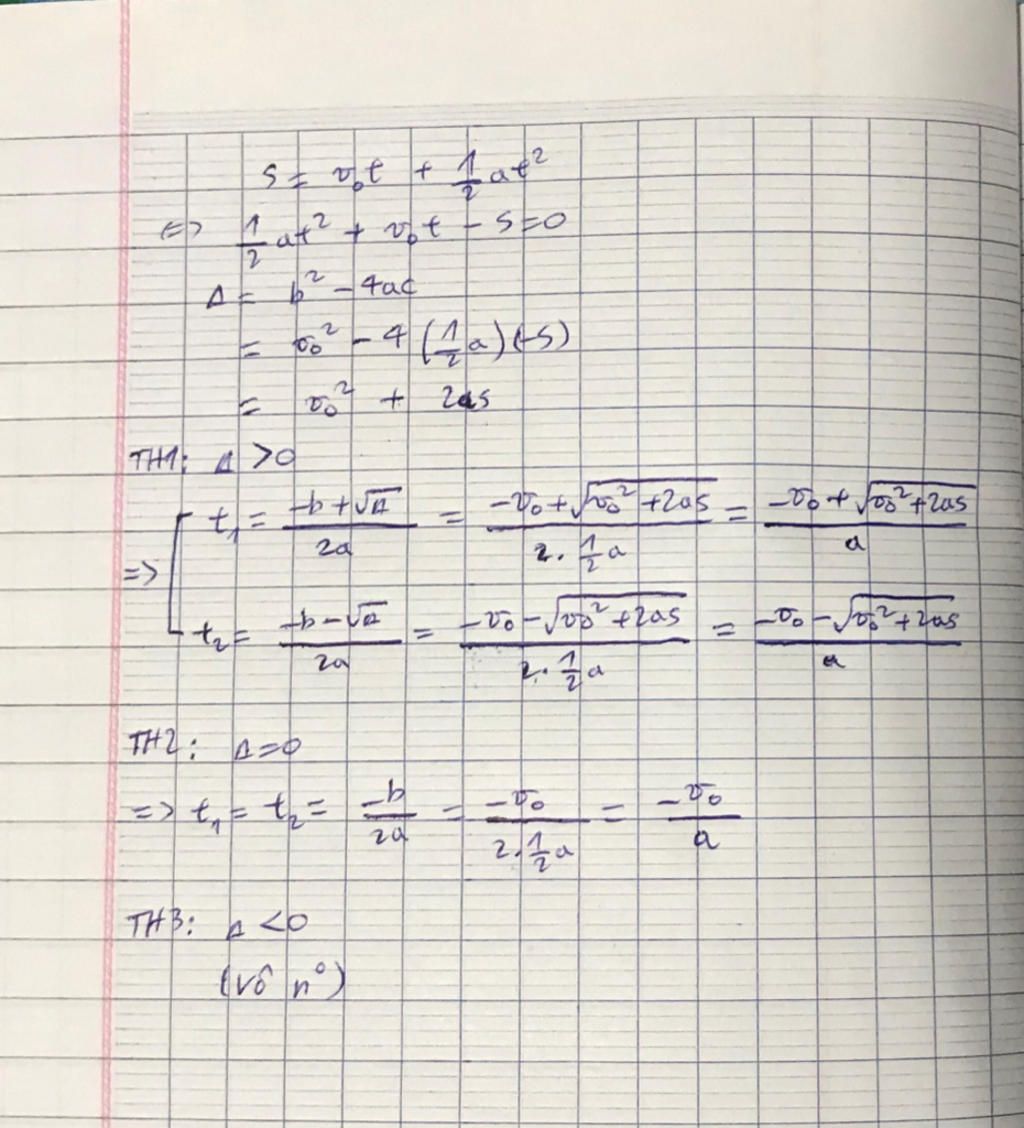 S = v₀t + 1/2 at²
<=> 1/2 at² + v₀t - S = 0
Δ = b² - 4ac
= v₀² - 4 (1/2 a) (-S)
= v₀² + 2as
TH1: Δ > 0
=> [ t₁ = (-b + √Δ)/(2a) = (-v₀ + √(v₀² + 2as))/(2 . 1/2 a) = (-v₀ + √(v₀² + 2as))/a
t₂ = (-b - √Δ)/(2a) = (-v₀ - √(v₀² + 2as))/(2 . 1/2 a) = (-v₀ - √(v₀² + 2as))/a
TH2: Δ = 0
=> t₁ = t₂ = (-b)/(2a) = (-v₀)/(2 . 1/2 a) = (-v₀)/a
TH3: Δ < 0
(vô n°)